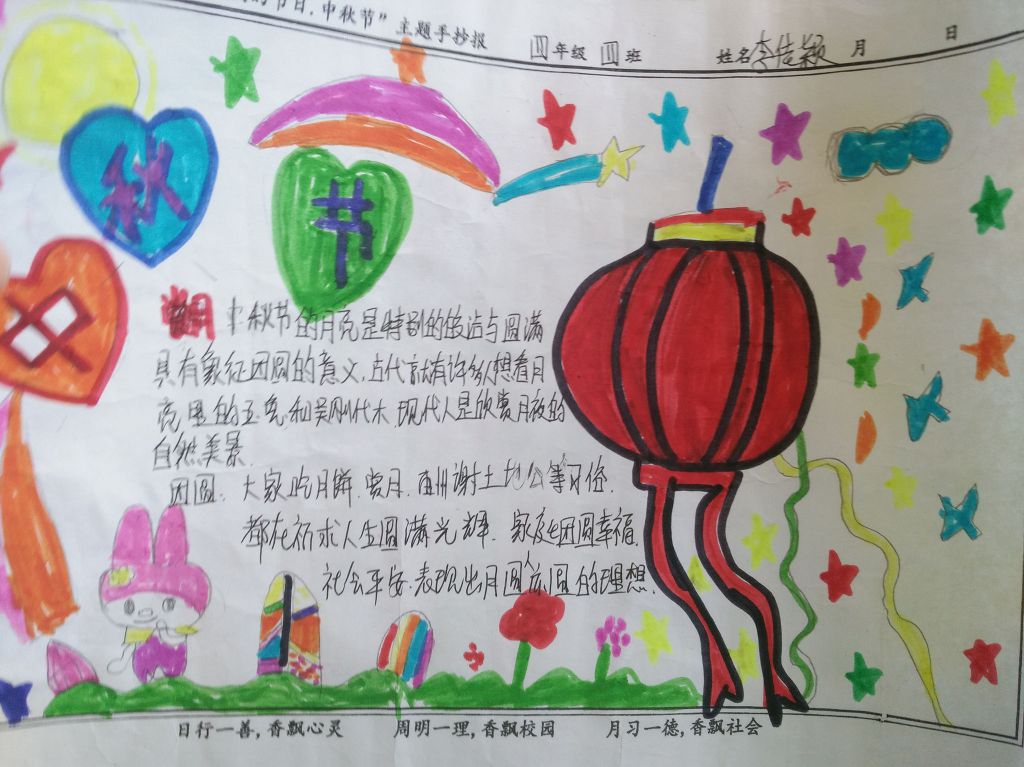 的节日,中秋节”主题手抄报
四年级 四班 姓名李佳颖 月 日
秋
节
中秋节的月亮是特别的皎洁与圆满
具有象征团圆的意义,古代就有许多人想着月
亮里的玉兔和吴刚伐木,现代人是欣赏月夜的
自然美景.
团圆:大家吃月饼、赏月、酬谢土地公等习俗,
都在祈求人生圆满光辉、家庭团圆幸福,
社会平安.表现出月圆人亦圆的理想.
日行一善,香飘心灵 周明一理,香飘校园 月习一德,香飘社会